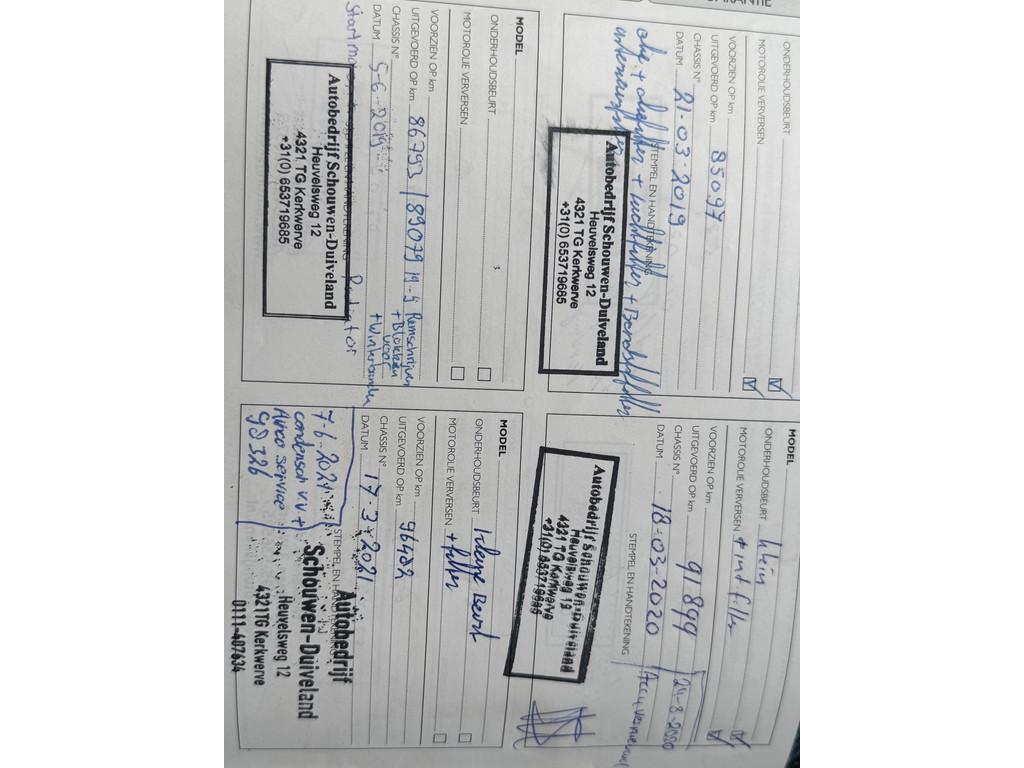 GARANTIE
ONDERHOUDSBEURT
MOTOROLIE VERVERSEN
VOORZIEN OP km
UITGEVOERD OP km 85097
CHASSIS N°
DATUM 21-03-2019
STEMPEL EN HANDTEKENING
olie + oliefilter + luchtfilter + Brandstoffilter
interieurfilter
Autobedrijf Schouwen-Duiveland
Heuvelsweg 12
4321 TG Kerkwerve
+31(0) 653719685
MODEL
ONDERHOUDSBEURT klein
MOTOROLIE VERVERSEN + int. filter
VOORZIEN OP km
UITGEVOERD OP km 91899
24-8-2020
CHASSIS N°
DATUM 18-03-2020
Accu vernieuwd
STEMPEL EN HANDTEKENING
Autobedrijf Schouwen-Duiveland
Heuvelsweg 12
4321 TG Kerkwerve
+31(0) 653719685
MODEL
ONDERHOUDSBEURT
MOTOROLIE VERVERSEN
VOORZIEN OP km
UITGEVOERD OP km 86793 / 89079 19-9 Remschrijven
+ Blokken
voor
+ Winterbanden
CHASSIS N°
DATUM 5-6-2019
Startmotor + Radiator
STEMPEL EN HANDTEKENING
Autobedrijf Schouwen-Duiveland
Heuvelsweg 12
4321 TG Kerkwerve
+31(0) 653719685
MODEL
ONDERHOUDSBEURT kleine Beurt
MOTOROLIE VERVERSEN + filter
VOORZIEN OP km
UITGEVOERD OP km 96482
CHASSIS N°
DATUM 17-3-2021
STEMPEL EN HANDTEKENING
7-6-2021
condensor v.v +
Airco service
98326
Autobedrijf
Schouwen-Duiveland
Heuvelsweg 12
4321TG Kerkwerve
0111-407634